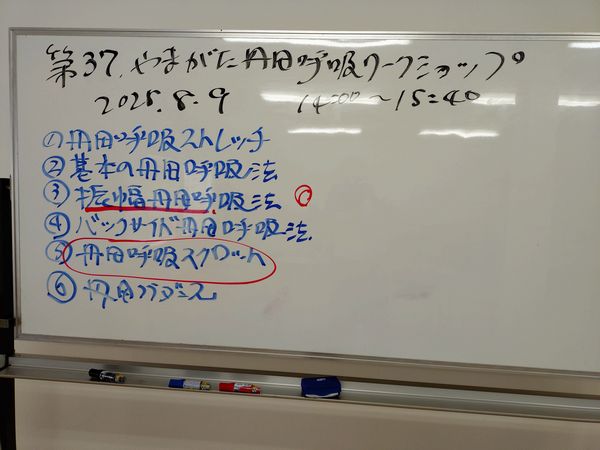 第37.やまがた丹田呼吸ワークショップ
2025.8.9 14:00〜15:40
①丹田呼吸ストレッチ
②基本の丹田呼吸法
③振幅丹田呼吸法
④バックサイド丹田呼吸法
⑤丹田呼吸スクワット
⑥丹田